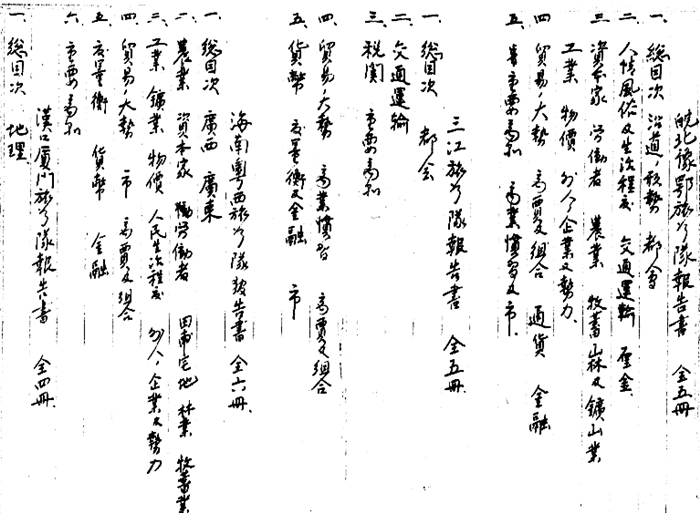 皖北豫鄂旅行隊報告書 全五冊
一、総目次 沿道ノ形勢 都會
二、人情風俗及生活程度 交通運輸 厘金
三、資本家 労働者 農業 牧畜山林及鑛山業
工業 物價 外人ノ企業及勢力
四、貿易ノ大勢 商賈及組合 通貨 金融
五、主要商品 商業慣習及市
三江旅行隊報告書 全五冊
一、総目次 都会
二、交通運輸
三、税関 主要商品
四、貿易ノ大勢 商業慣習 商賈及組合
五、貨幣 度量衡及金融 市
海南粤西旅行隊報告書 全六冊
一、総目次 廣西 廣東
二、農業 資本家 労働者 田園宅地 林業 牧畜業
三、工業 鑛業 物價 人民生活程度 外人ノ企業及勢力
四、貿易ノ大勢 市 商賈及組合
五、度量衡 貨幣 金融
六、主要商品
漢口廈門旅行隊報告書 全四冊
一、総目次 地理